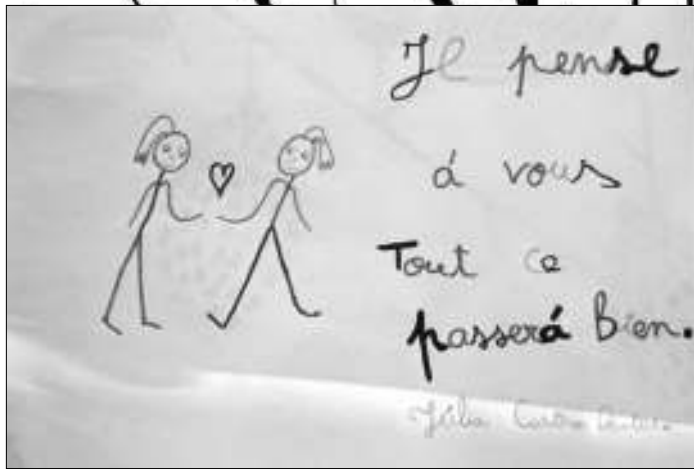 Je pense
á vous
Tout ce
passerá bien.
Júlia